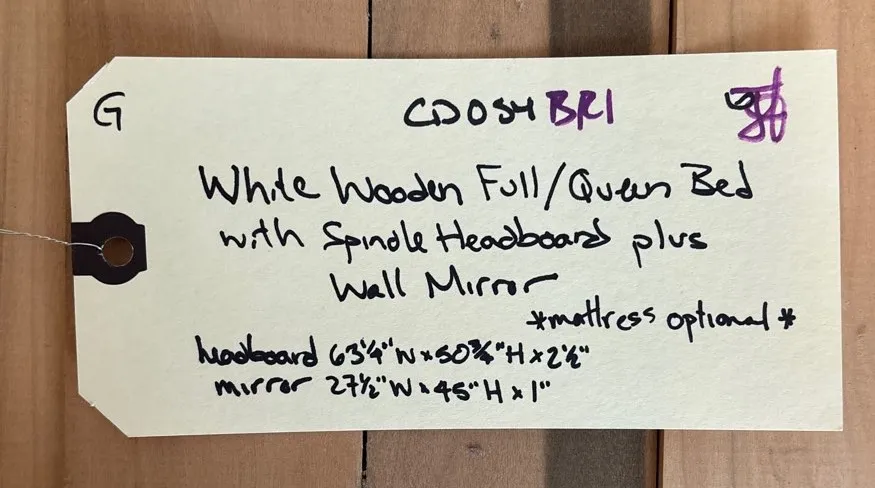 G
CD054 BR1
White Wooden Full/Queen Bed
with Spindle Headboard plus
Wall Mirror
*mattress optional*
headboard 63¼"W x 50¾"H x 2½"
mirror 27½"W x 45"H x 1"